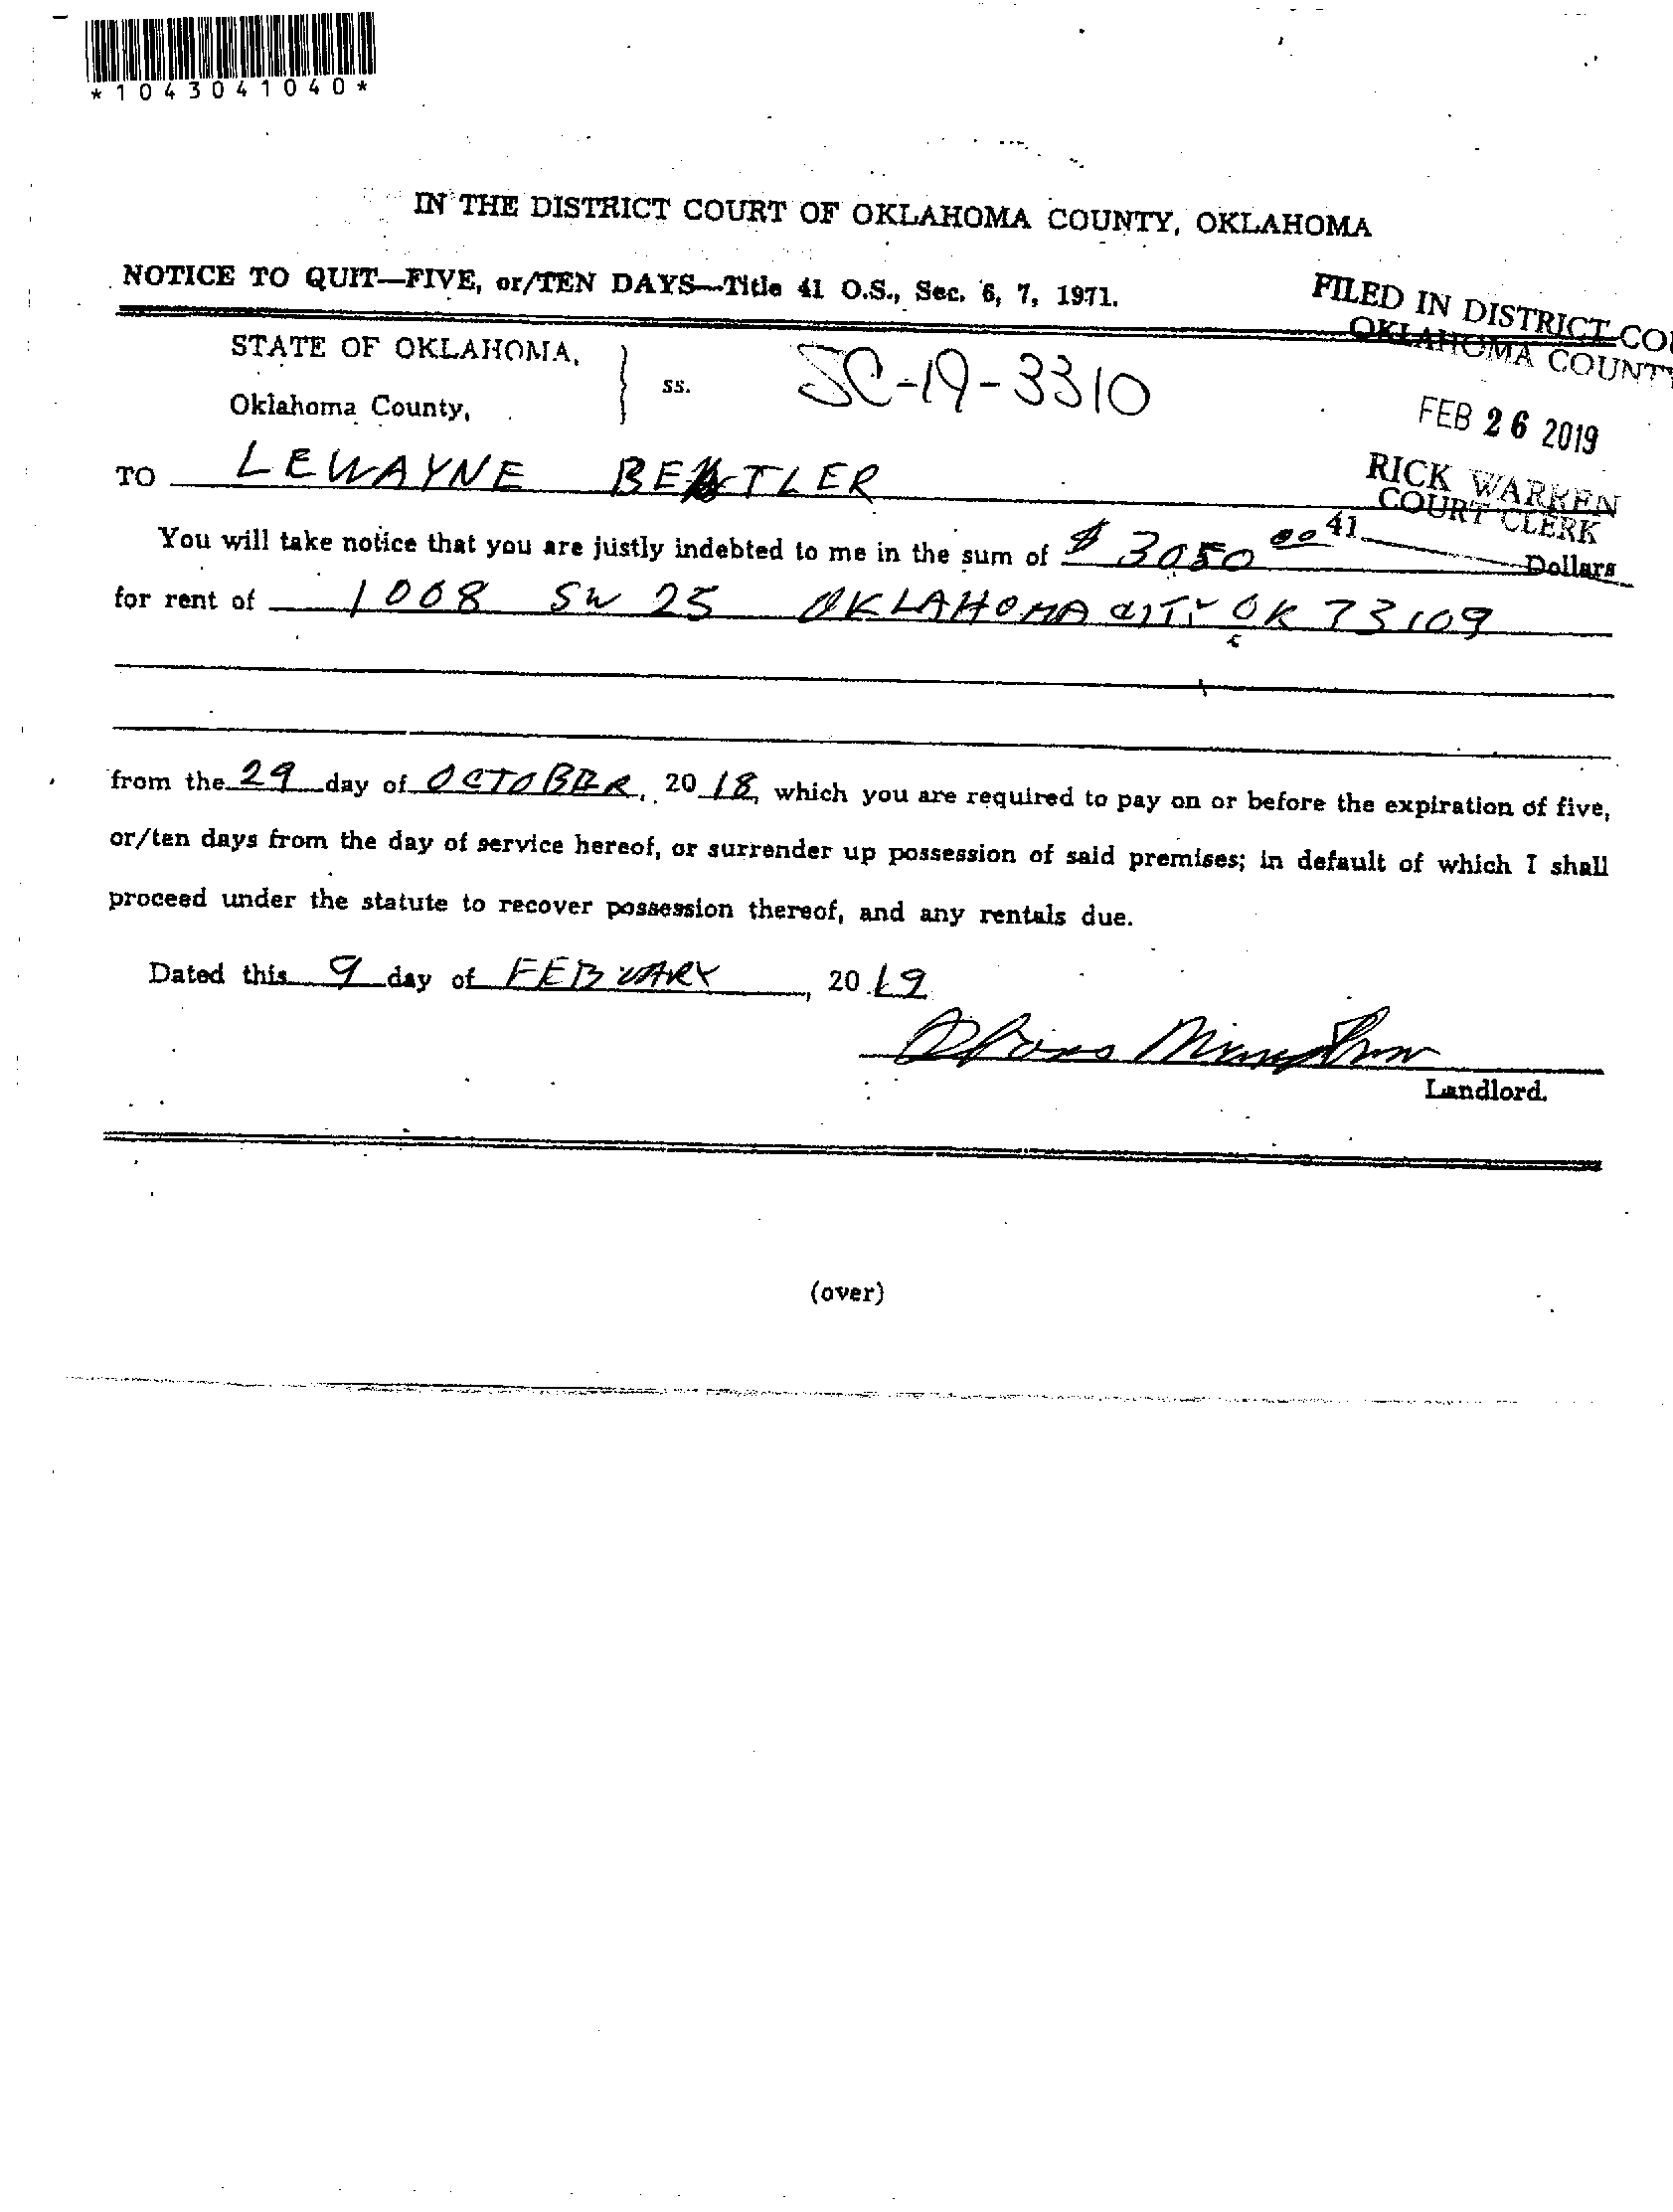 *1043041040*
IN THE DISTRICT COURT OF OKLAHOMA COUNTY, OKLAHOMA
NOTICE TO QUIT—FIVE, or/TEN DAYS—Title 41 O.S., Sec. 6, 7, 1971.
FILED IN DISTRICT
OKLAHOMA COUNTY
STATE OF OKLAHOMA,
Oklahoma County,
ss.
SC-19-3310
FEB 26 2019
RICK WARREN
COURT CLERK
41
TO LEWAYNE
You will take notice that you are justly indebted to me in the sum of $ 3050 00 Dollars
for rent of 1008 SW 25 OKLAHOMA CITY OK 73109
from the 29 day of OCTOBER, 2018, which you are required to pay on or before the expiration of five,
or/ten days from the day of service hereof, or surrender up possession of said premises; in default of which I shall
proceed under the statute to recover possession thereof, and any rentals due.
Dated this 9 day of FEBUARY, 2019
Landlord.
(over)